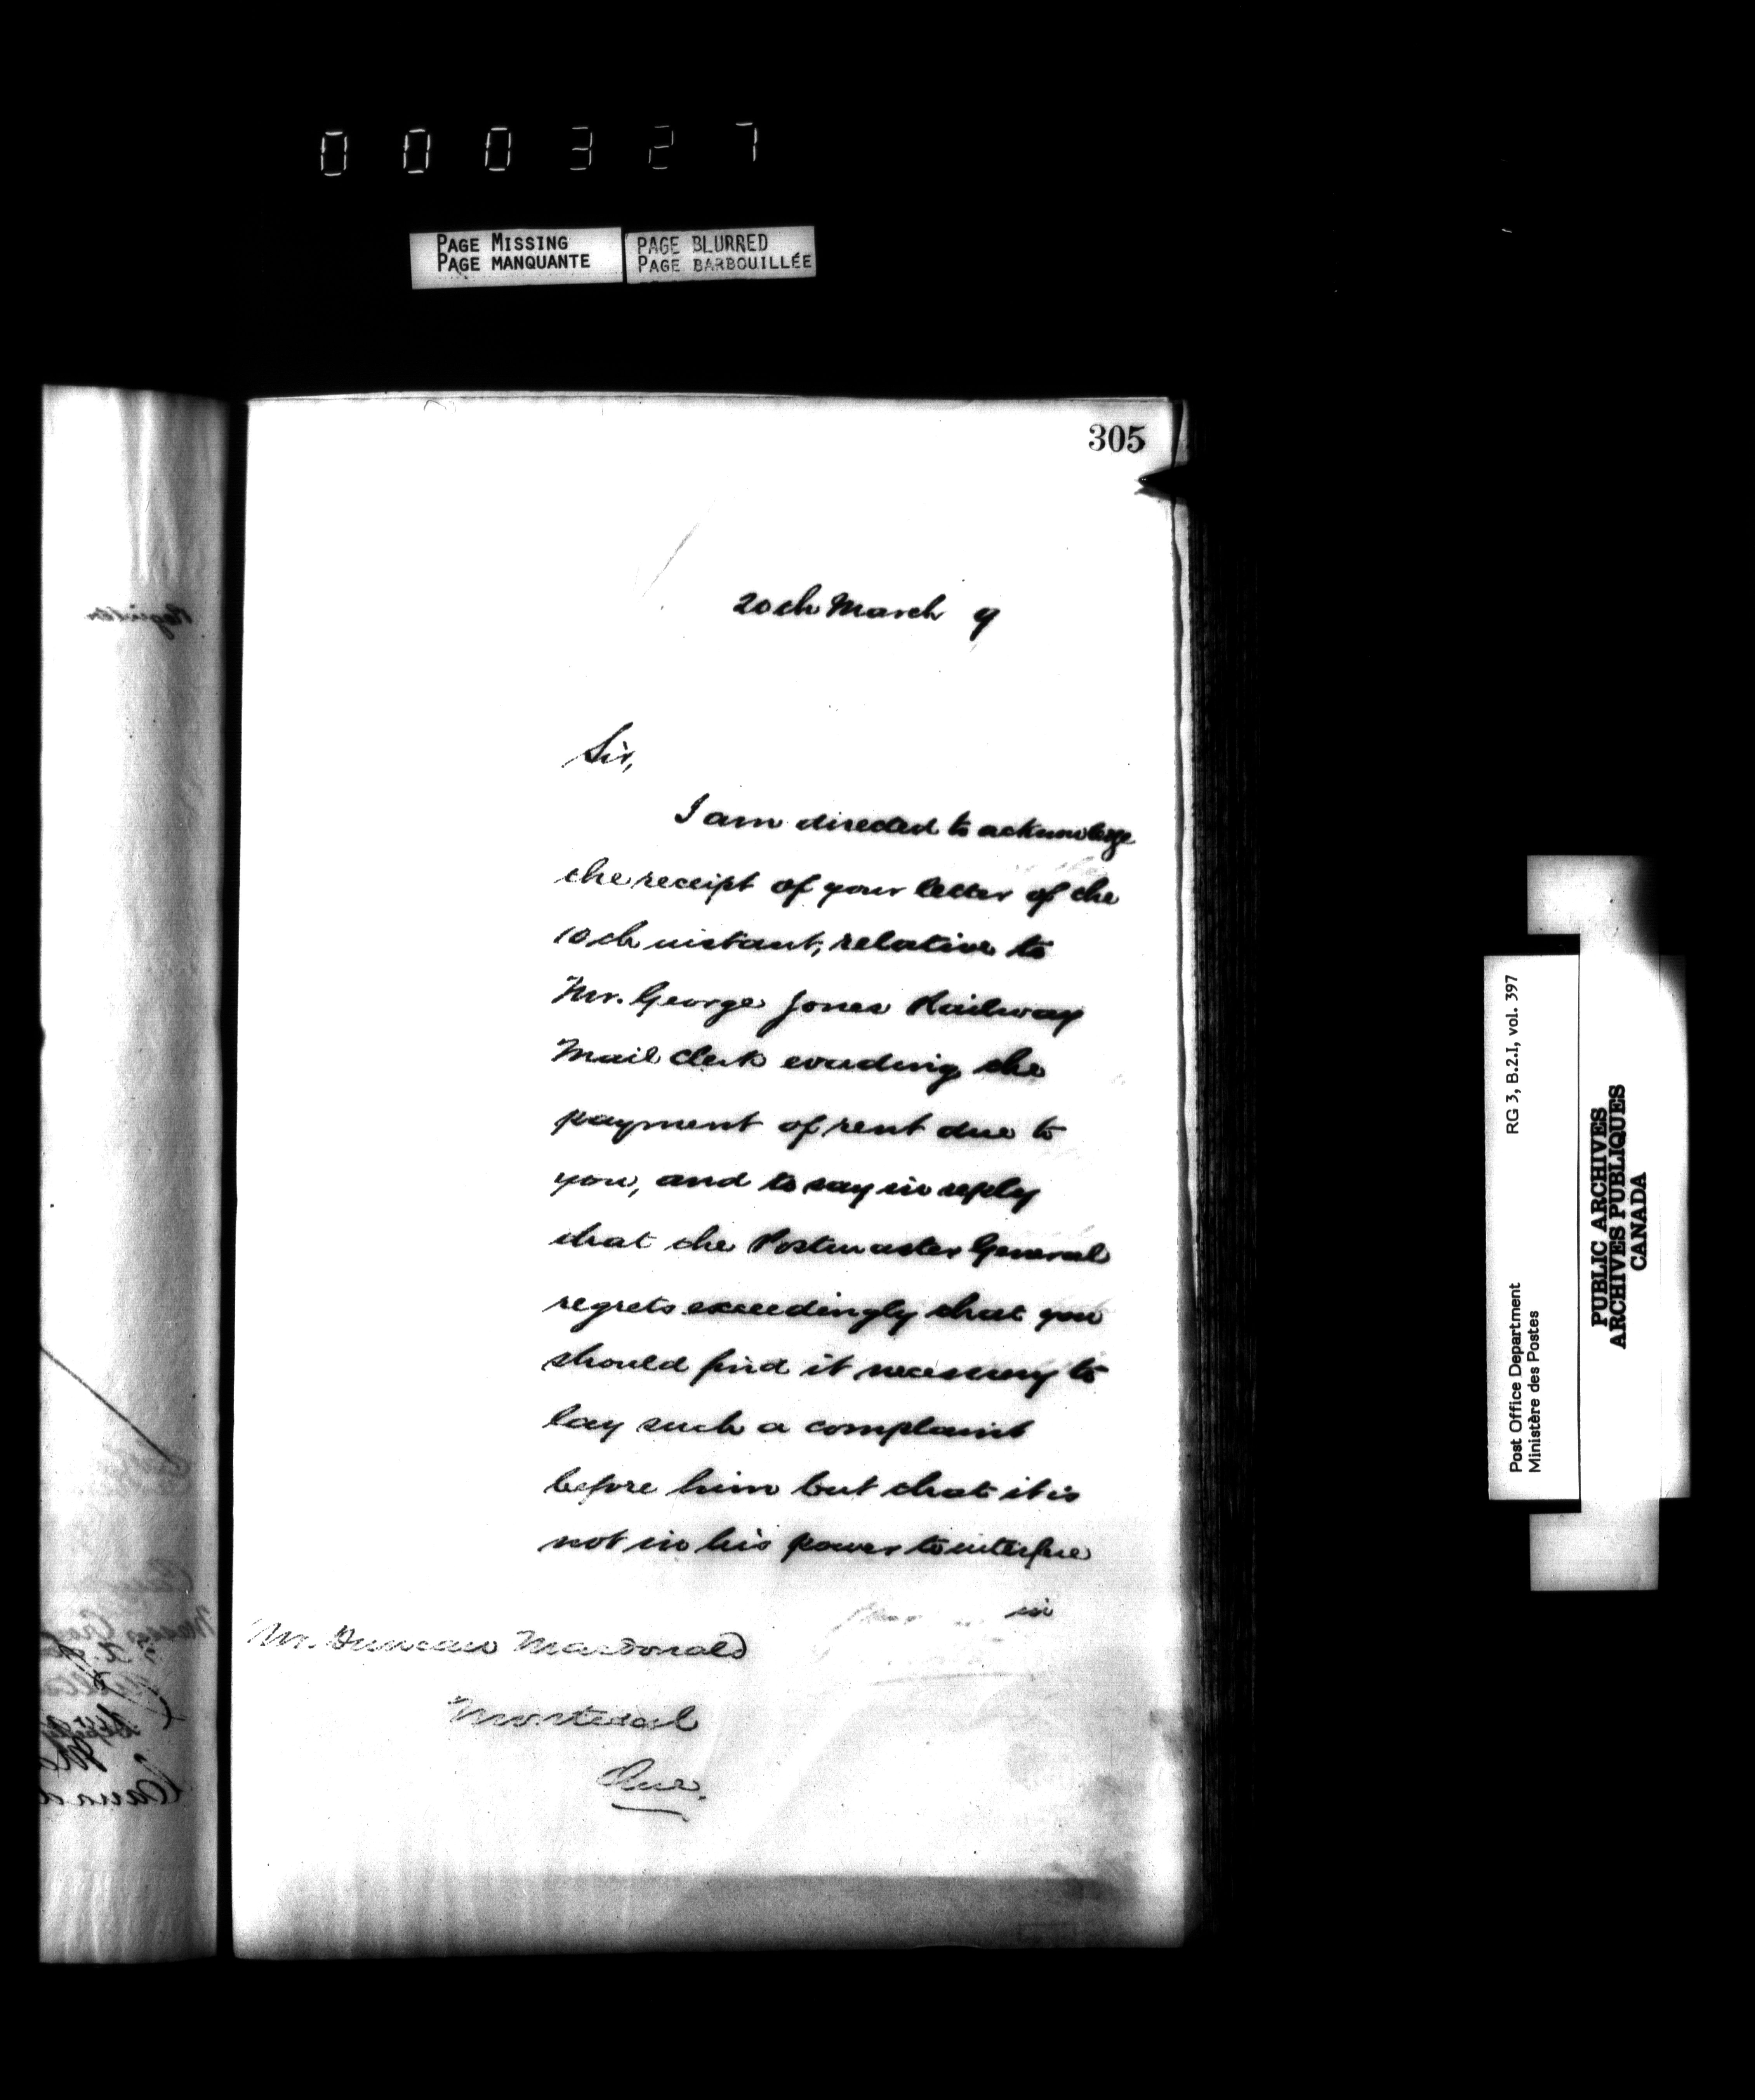 000327
PAGE MISSING
PAGE MANQUANTE
PAGE BLURRED
PAGE BARBOUILLÉE
305
20th March 9
Sir,
I am directed to acknowledge
the receipt of your letter of the
10th instant, relative to
Mr. George Jones Railway
Mail Clerk evading the
payment of rent due to
you, and to say in reply
that the Postmaster General
regrets exceedingly that you
should find it necessary to
lay such a complaint
before him but that it is
not in his power to interfere
in
Mr. Duncan Macdonald
Montreal
Que.
Post Office Department
Ministère des Postes
RG 3, B.2.I, vol. 397
PUBLIC ARCHIVES
ARCHIVES PUBLIQUES
CANADA